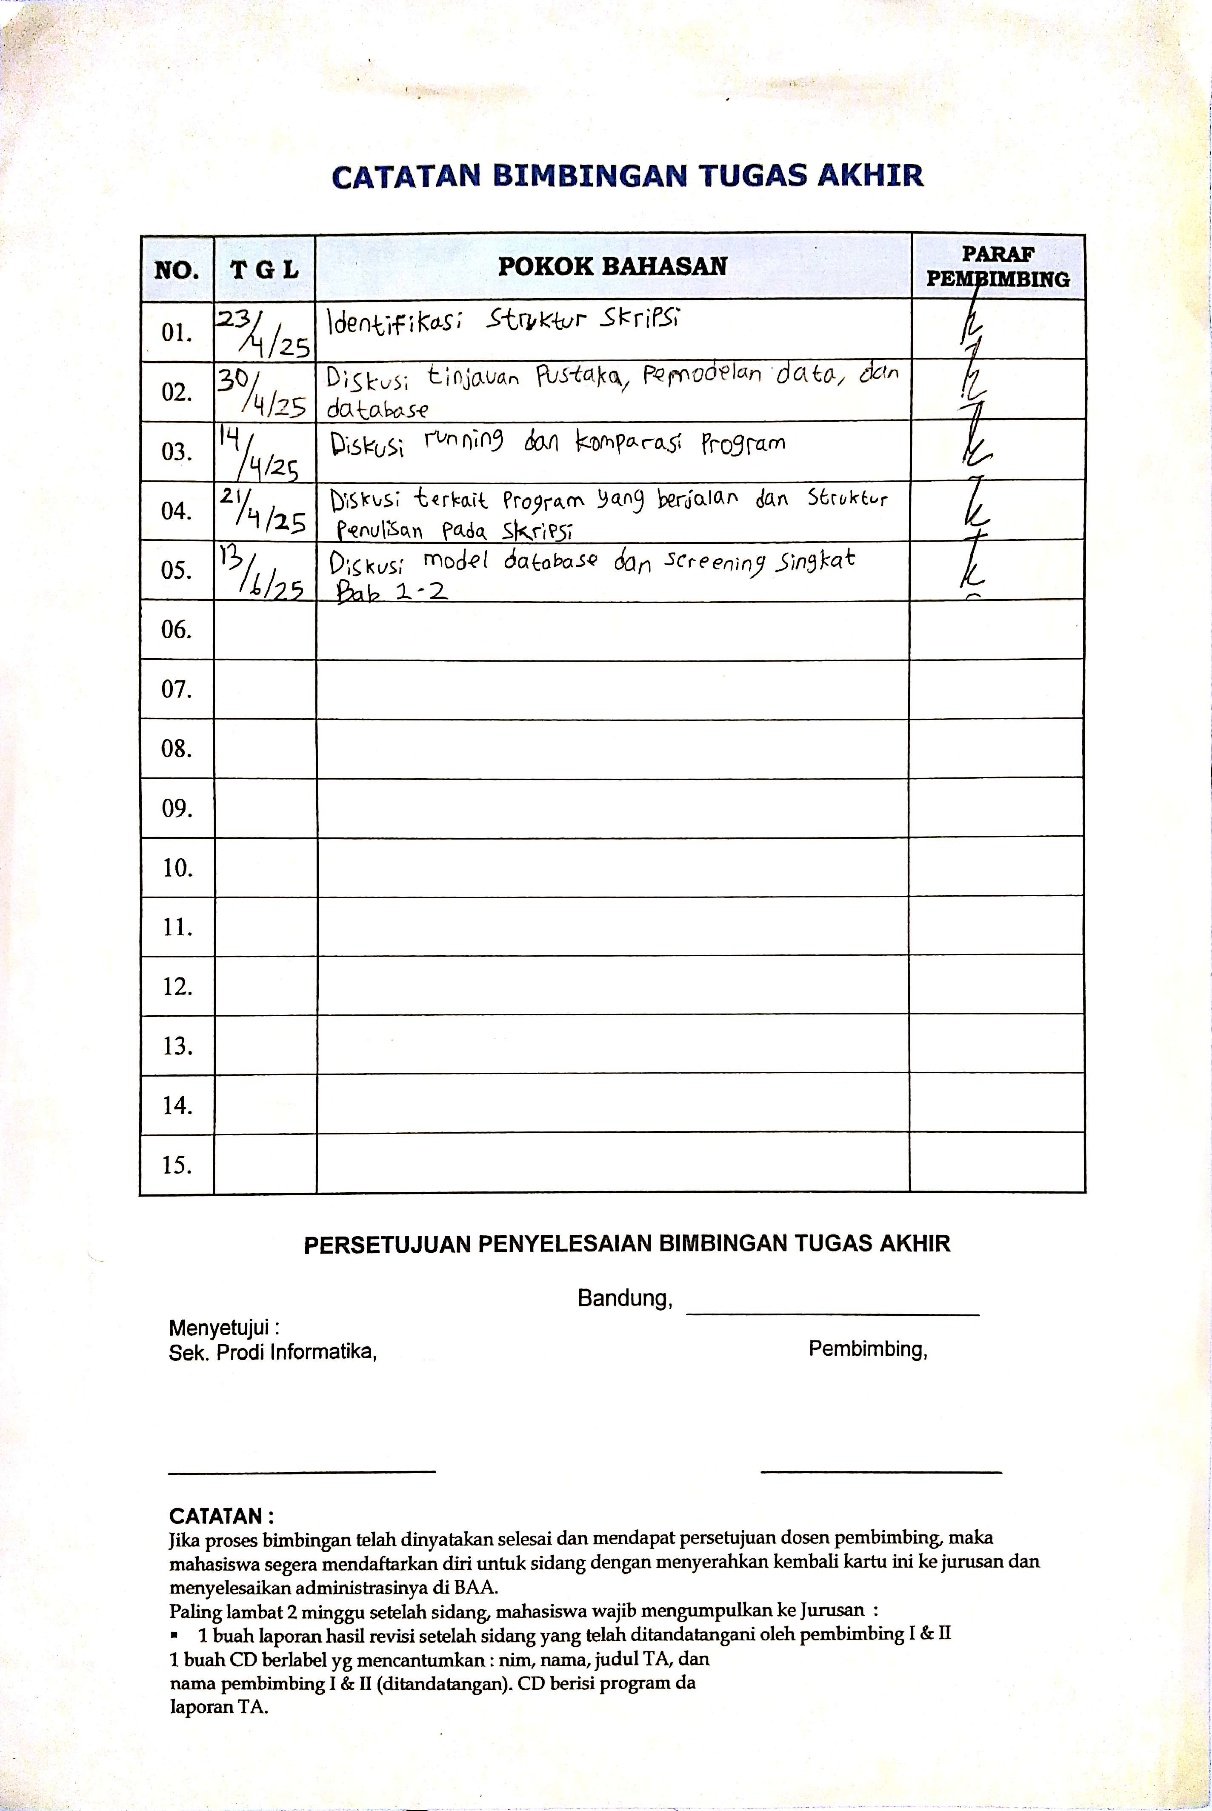 CATATAN BIMBINGAN TUGAS AKHIR
NO. T G L POKOK BAHASAN PARAF
PEMBIMBING
01. 23/4/25 Identifikasi Struktur Skripsi
02. 30/4/25 Diskusi tinjauan Pustaka, Pemodelan data, dan
database
03. 14/4/25 Diskusi running dan komparasi Program
04. 21/4/25 Diskusi terkait Program yang berjalan dan Struktur
Penulisan Pada Skripsi
05. 13/6/25 Diskusi model database dan screening Singkat
Bab 1-2
06.
07.
08.
09.
10.
11.
12.
13.
14.
15.
PERSETUJUAN PENYELESAIAN BIMBINGAN TUGAS AKHIR
Bandung,
Menyetujui :
Sek. Prodi Informatika, Pembimbing,
CATATAN :
Jika proses bimbingan telah dinyatakan selesai dan mendapat persetujuan dosen pembimbing, maka
mahasiswa segera mendaftarkan diri untuk sidang dengan menyerahkan kembali kartu ini ke jurusan dan
menyelesaikan administrasinya di BAA.
Paling lambat 2 minggu setelah sidang, mahasiswa wajib mengumpulkan ke Jurusan :
▪ 1 buah laporan hasil revisi setelah sidang yang telah ditandatangani oleh pembimbing I & II
1 buah CD berlabel yg mencantumkan : nim, nama, judul TA, dan
nama pembimbing I & II (ditandatangan). CD berisi program da
laporan TA.